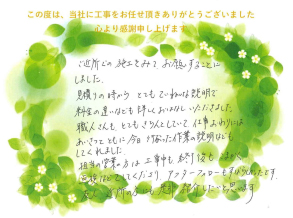 この度は、当社に工事をお任せ頂きありがとうございました
心より感謝申し上げます
ご近所での施工をみてお願いすることに
しました。
見積りの時から とてもていねいな説明で
料金の違いなども詳しくおはなしいただきました。
職人さんも とてもきちんとしていて 仕事おわりには
あいさつとともに 今日行なった作業の説明なども
してくれました
担当の営業の方は 工事中も 終り後も
連絡などをしてくださり、アフターフォローも
ご近所の方にも是非 紹介したいと思います